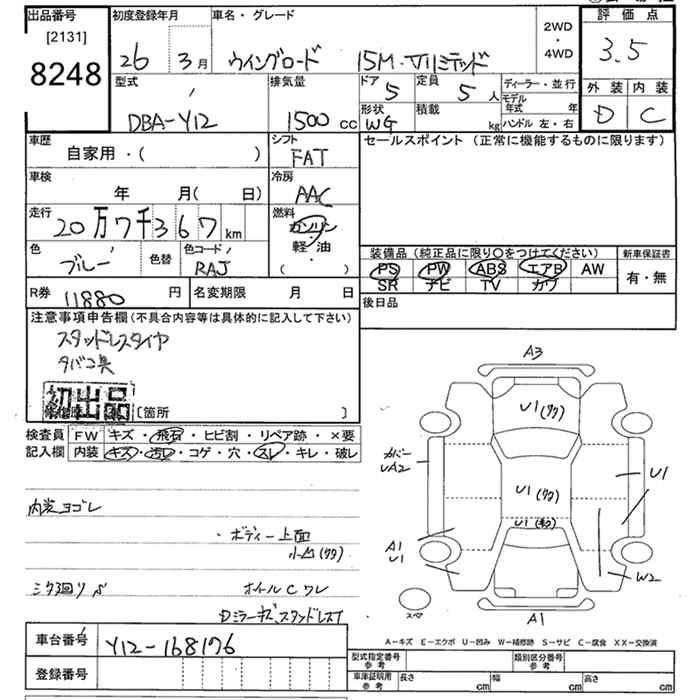 出品番号 初度登録年月 車名・グレード 評価点
[2131] 2WD
8248 26年 3月 ウイングロード 15M・Vリミテッド ・ 3.5
4WD
型式 排気量 ドア 定員 ディーラー・並行 外装 内装
5 5人 モデル年式 年 D C
DBA-Y12 1500cc 形状 積載 ハンドル 左・右
WG kg
車歴 シフト セールスポイント (正常に機能するものに限ります)
自家用・( ) FAT
車検 冷房
年 月( 日) AAC
走行 20万7千367km 燃料
ガソリン
色 ブルー 色替 色コード RAJ 軽油
・
( )
装備品 (純正品に限り〇をつけてください) 新車保証書
PS PW ABS エアB AW 有・無
SR ナビ TV カワ
R券 11880円 名変期限 月 日 後日品
注意事項申告欄(不具合内容等は具体的に記入して下さい)
スタッドレスタイヤ
タバコ臭
初出品
[箇所 ]
検査員 FW キズ・飛石・ヒビ割・リペア跡・×要
記入欄 内装 キズ・汚レ・コゲ・穴・スレ・キレ・破レ
内装ヨゴレ
・ボディー上面
小凹(ワク)
ホイールCワレ
Dミラーキズ スタッドレス
A3
U1(ワク)
カバー
UA2
U1(ワク)
U1
A1
U1
W2
スペア
A1
A-キズ E-エクボ U-凹み W-補修跡 S-サビ C-腐食 XX-交換済
車台番号 Y12-168176
登録番号
型式指定番号 参考 類別区分番号 参考
車庫証明用 参考 長さ cm 幅 cm 高さ cm